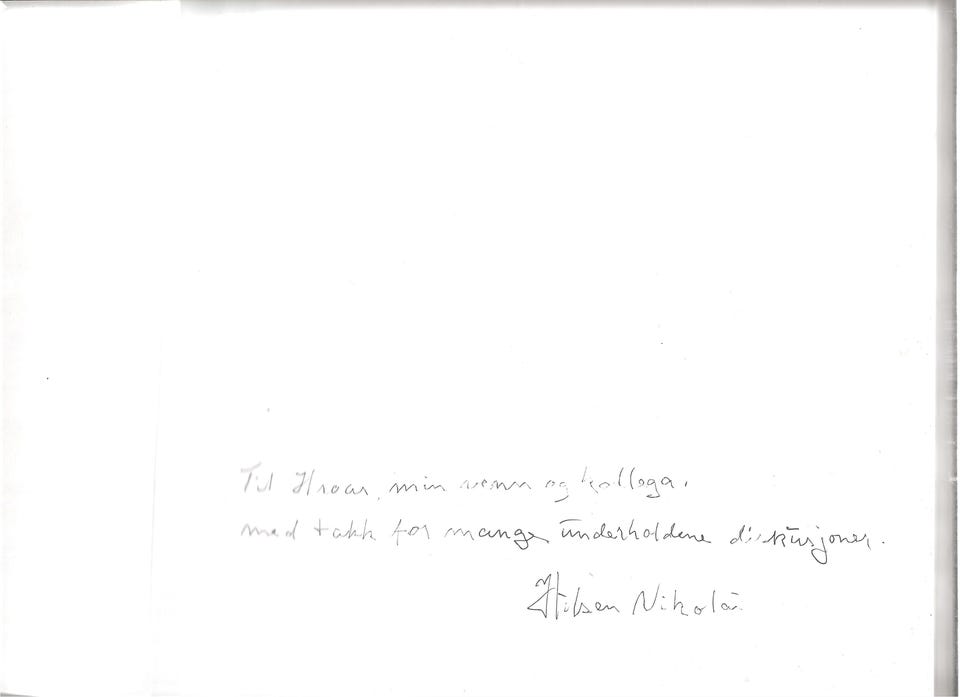 Til Hroar, min venn og kollega,
med takk for mange underholdene diskusjoner.
Hilsen Nikolai